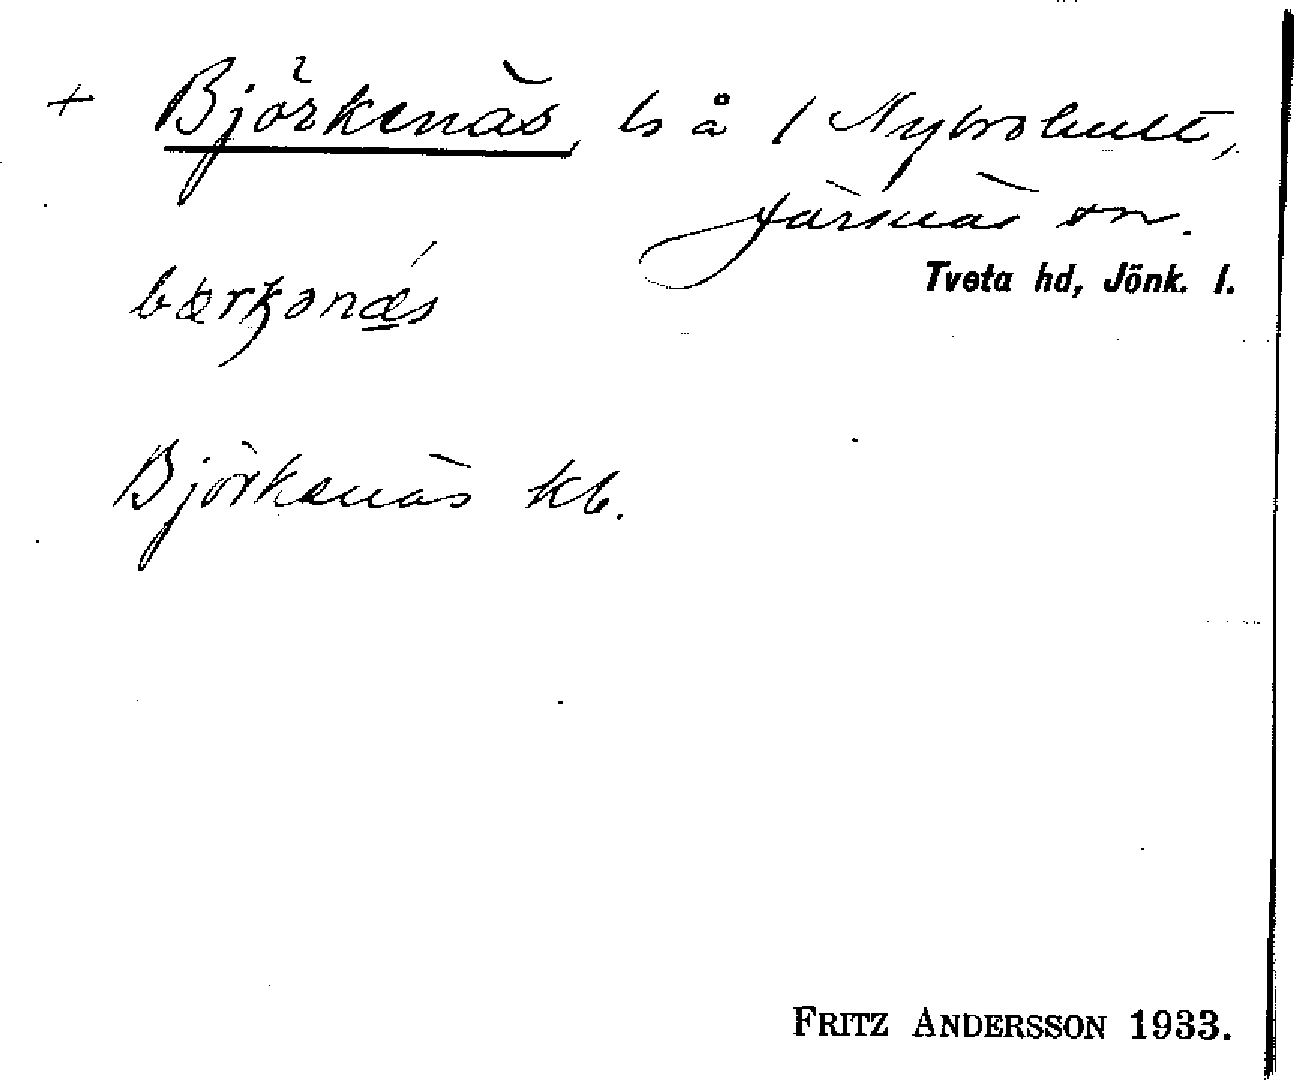 + Björkenäs, ls å 1 Nybrohult,
Järsnäs sn.
Tveta hd, Jönk. l.
bærkənæs
Björkenäs kb.
FRITZ ANDERSSON 1933.